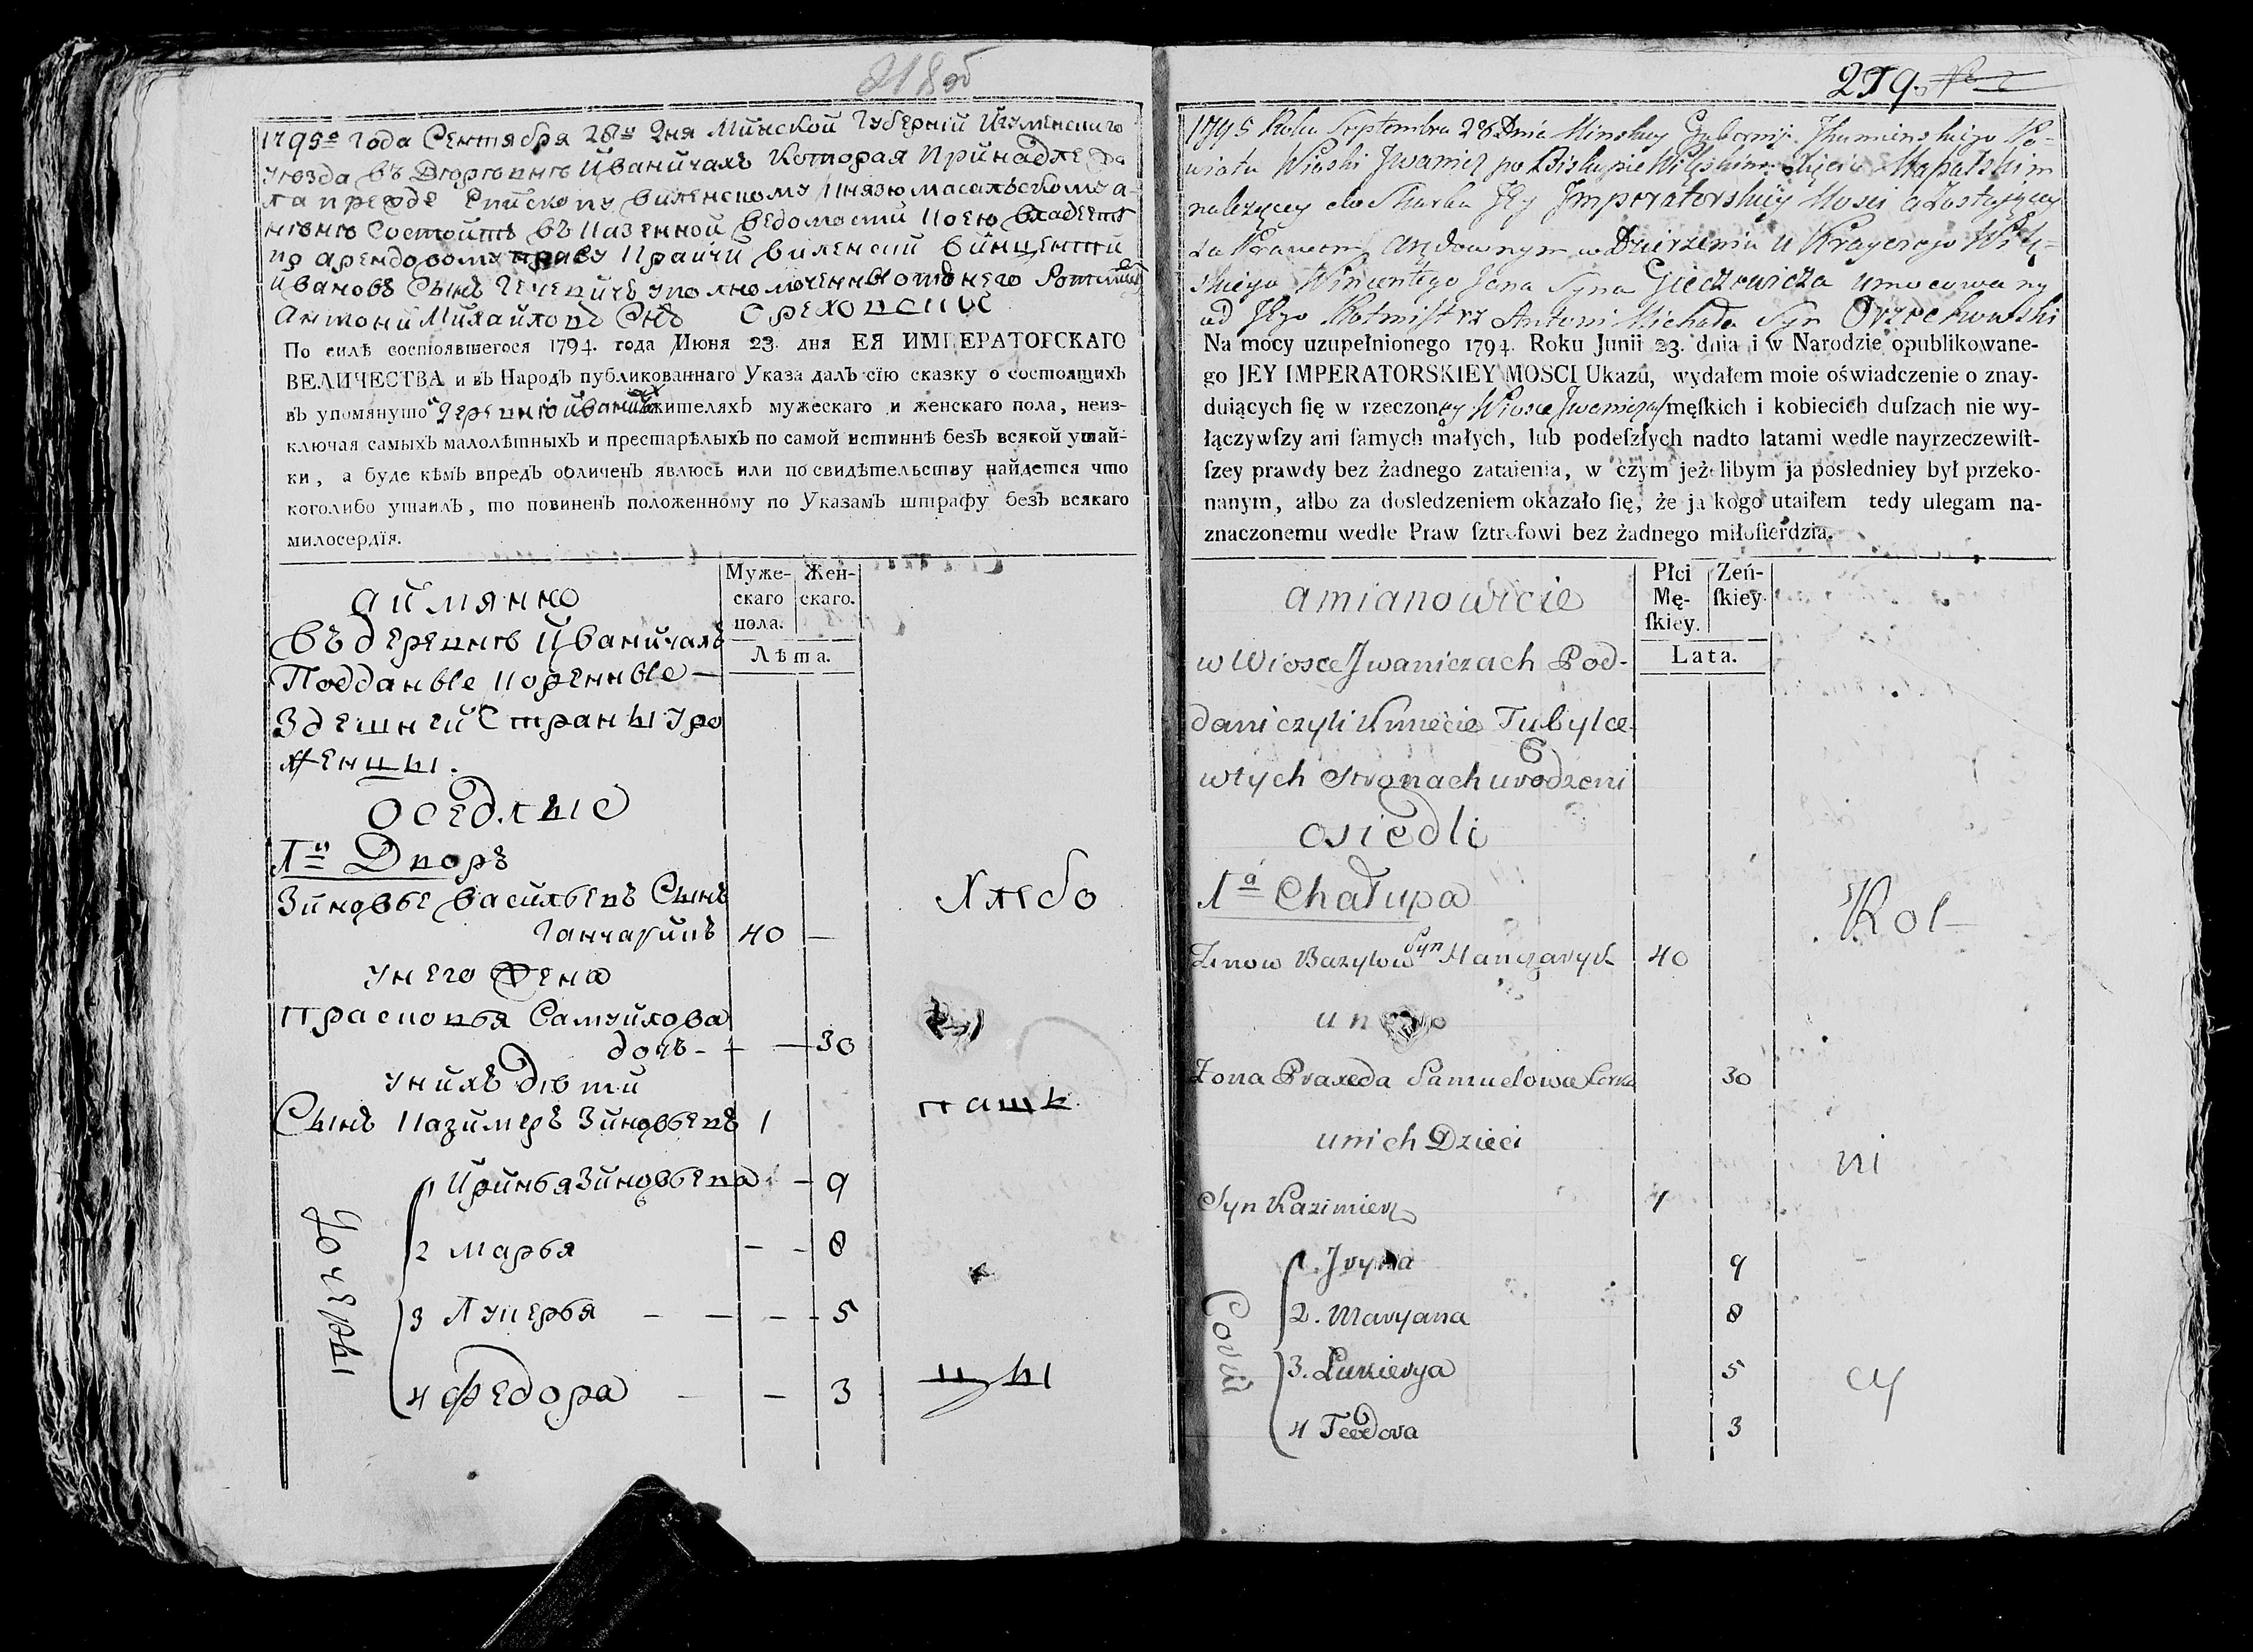 218 об
1795го Года Сентября 28го Дня Минской Губерніи Игуменскаго
уезда въ Деревне Иваничахъ Которая Принадлежа
ла прежде Епископу виленскому Князю масальскому а
ныне Состоитъ въ Казенной ведомости Коею владеетъ
по арендовому праву Крайчій виленскій винцентій
Ивановъ Сынъ уполномоченный отъ него Ротмистръ
Антоній Михайловъ Снъ Ореховскій
По силѣ состоявшегося 1794. года Июня 23. дня ЕЯ ИМПЕРАТОРСКАГО
ВЕЛИЧЕСТВА и въ Народъ публикованнаго Указа далъ сїю сказку о состоящихъ
въ упомянутой деревне Иваничахъ жителяхъ мужескаго и женскаго пола, неиз-
ключая самыхъ малолѣтныхъ и престарѣлыхъ по самой истиннѣ безъ всякой утай-
ки, а буде кѣмъ впредъ обличенъ явлюсь или по свидѣтельству найдется что
коголибо утаилъ, то повиненъ положенному по Указамъ штрафу безъ всякаго
милосердїя.
Муже-
скаго
пола.
Жен-
скаго.
Лѣта.
а имянно
въ деревне Иваничахъ
Подданые коренные —
Здешней Страны уро
женцы.
оседлые
1й Дворъ
Зиновье васильевъ Сынъ
Ганчарикъ 40 —
у него Жена
Прасковья Самуилова
дочь — 30
у нихъ дети
Сынъ Казимеръ Зиновьевъ 1
дочери
1 Иринья Зиновьева — 9
2 Марья — 8
3 Лукерья — 5
4 Федора — 3
Хлебо
паш
цы
219.
1795 Roku Septembra 28 Dnia Minskiey Gubernij Jhumienskiego Po-
wiatu Wioski Jwanicz po Biskupie Wileńskim Xięciu Massalskim
należącey do Skarbu Jey Jmperatorskiey Mosci a Zostającey
za Prawem Arędownym w Dzierżeniu u Krayczego Wileń-
skiego Wincentego Jana Syna Gieczewicza umocowany
od Jego Rotmistrz Antoni Michała Syn Orzechowski
Na mocy uzupełnionego 1794. Roku Junii 23. dnia i w Narodzie opublikowane-
go JEY IMPERATORSKIEY MOSCI Ukazu, wydałem moie oświadczenie o znay-
duiących ſię w rzeczoney Wiosce Jwaniczach męſkich i kobiecich duſzach nie wy-
łączywſzy ani ſamych małych, lub podeſzłych nadto latami wedle nayrzeczewiſt-
ſzey prawdy bez żadnego zataienia, w czym jeżelibym ja posledniey był przeko-
nanym, albo za dosledzeniem okazało ſię, że ja kogo utaiłem tedy ulegam na-
znaczonemu wedle Praw ſztrofowi bez żadnego miłoſierdzia.
Płci
Mę-
ſkiey.
Zeń-
ſkiey.
Lata.
amianowicie
w Wiosce Jwaniczach Pod-
dani czyli Kmiecie Tubylce
w tych Stronach urodzeni
osiedli
1a Chałupa
Zinow Bazylow Syn Hanczaryk 40
u niego
Zona Praxeda Samuelowa Corka 30
u nich Dzieci
Syn Kazimierz 1
Corki
1. Jryna 9
2. Maryana 8
3. Lukierya 5
4 Teodora 3
Rol-
ni
cy